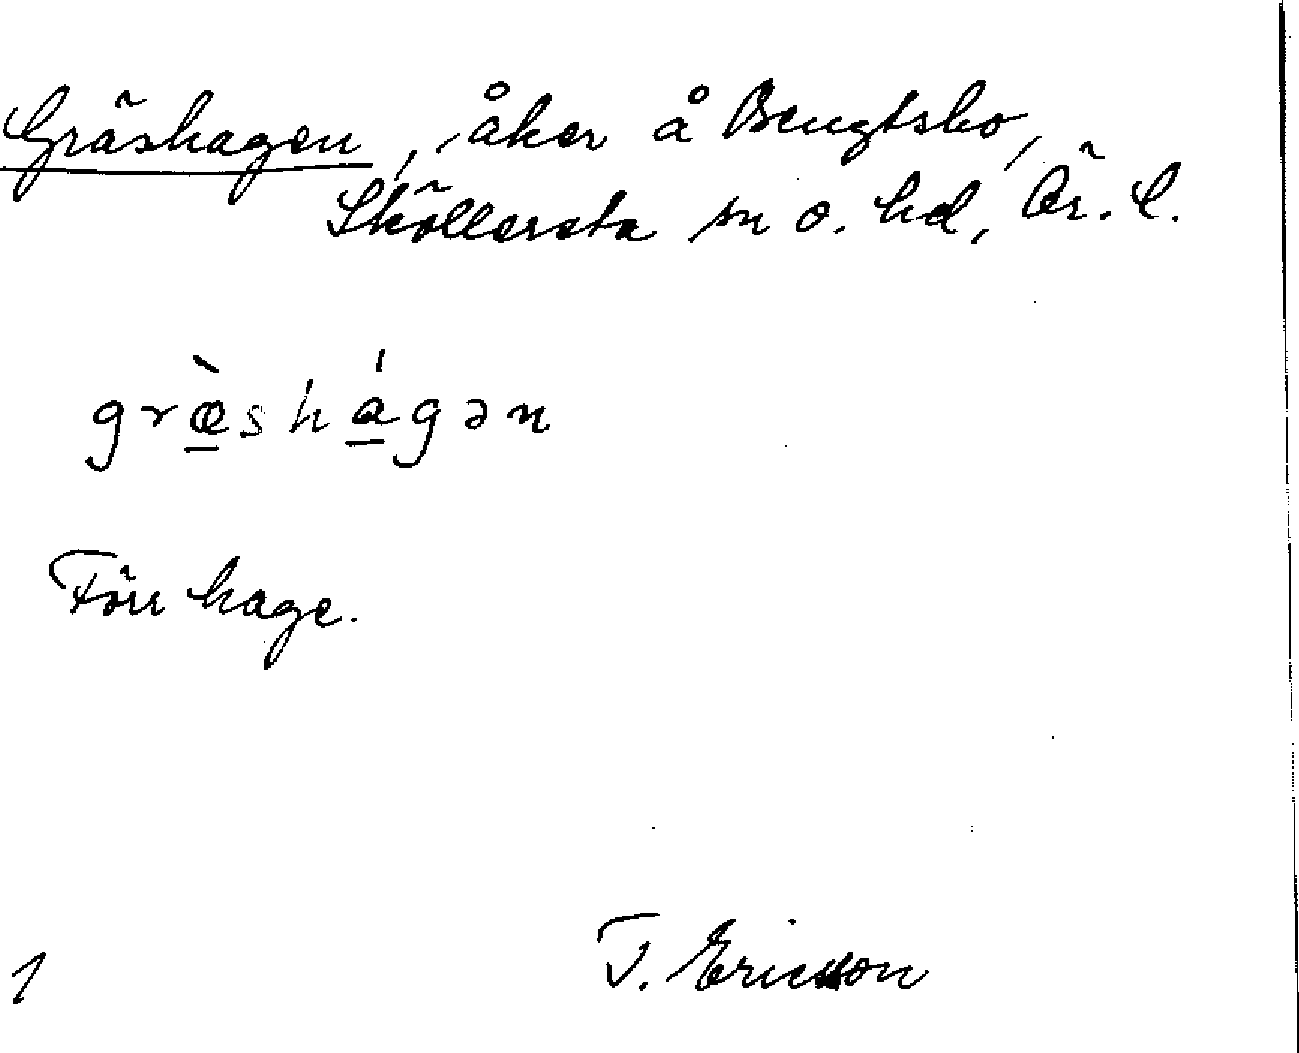 Gräshagen, åker å Bengtsbo,
Sköllersta sn o. hd, Ör. l.
græ̱̀shá̱gən
Förr hage.
1
T. Ericsson